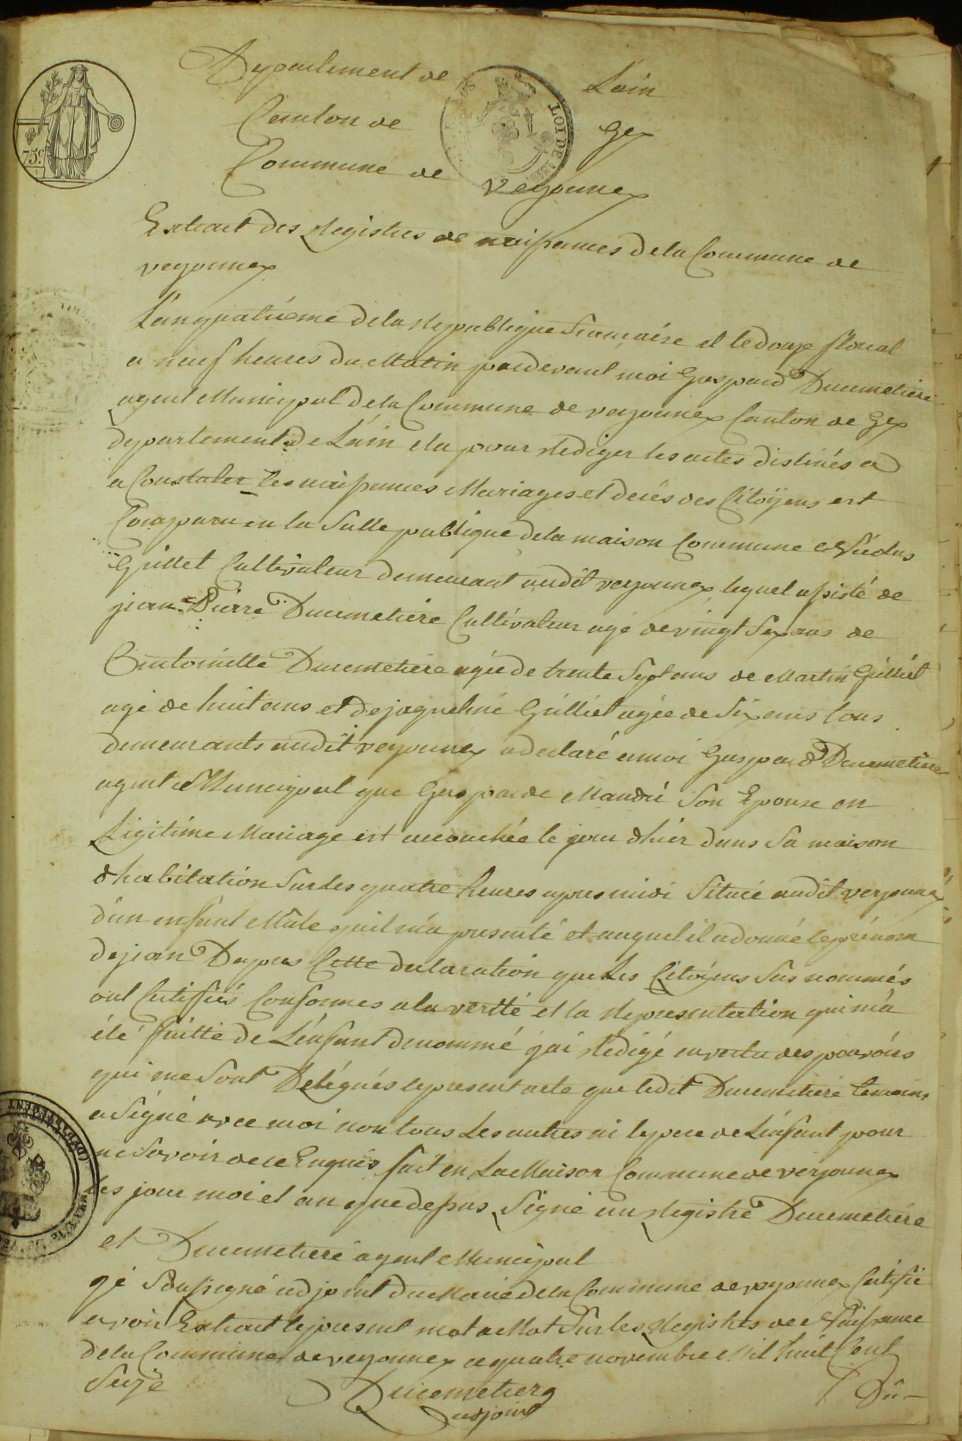 Departement de Lain
Canton de Gex
Commune de Veÿonnex
Extrait des Registres de naissances dela Commune de
veyonnex
L'an quatriéme dela Republique francaise et le douze floreal
a neuf heures du Matin pardevant moi Gaspard Ducimetiere
agent Municipal dela Commune de veyonnex Canton de Gex
departement de L'ain elu pour Rediger les actes distinés a
a Constater les naissances Mariages et decés des Citoÿens est
Comparu en la Salle publique dela maison Commune
Grillet Cultivateur demeurant audit veyonnex lequel assisté de
jean-Pierre Ducimetiére Cultivateur agé de vingt Six ans de
Antoinette Ducimetiére agée de trente Sept ans de Martin Grilliet
agé de huit ans et de jaqueline Grilliet agée de Six ans tous
demeurants audit veyonnex a declaré a moi Gaspard Ducimetiére
agent Municipal que Gasparde Maudri Son Epouse en
Légitime Mariage est accouchée le jour d'hier dans Sa maison
d'habitation Sur les quatre heures apres midi Situeé audit veryonnex
d'un enfant Mâle quil m'a presenté et auquel il a donné le prénom
de jean D'apres Cette declaration que Les Citoÿens Sus nommés
ont Certifiés Conformes a la verité et la Representation qui m'a
été faitte de L'enfant denommé j'ai Rédigé en vertu des pouvoirs
qui me Sont Delégués le present acte que ledit Ducimetiére temoins
a Signé avec moi non tous Les autres ni le pere de L'enfant pour
ne Savoir de ce Enquis fait en La Maison Commune de veryonnex
les jour moi et an que dessus Signé au Registre Ducimetiére
et Ducimetiere agent Municipal
Je Soussigné adjoint du Maire dela Commune de veyonnex Certifie
avoir Extrait le present mot a Mot Sur les Registres de Naissance
dela Commune de veyonnex ce quatre novembre Mil huit Cent
Seize
Ducimetiere
adjoint